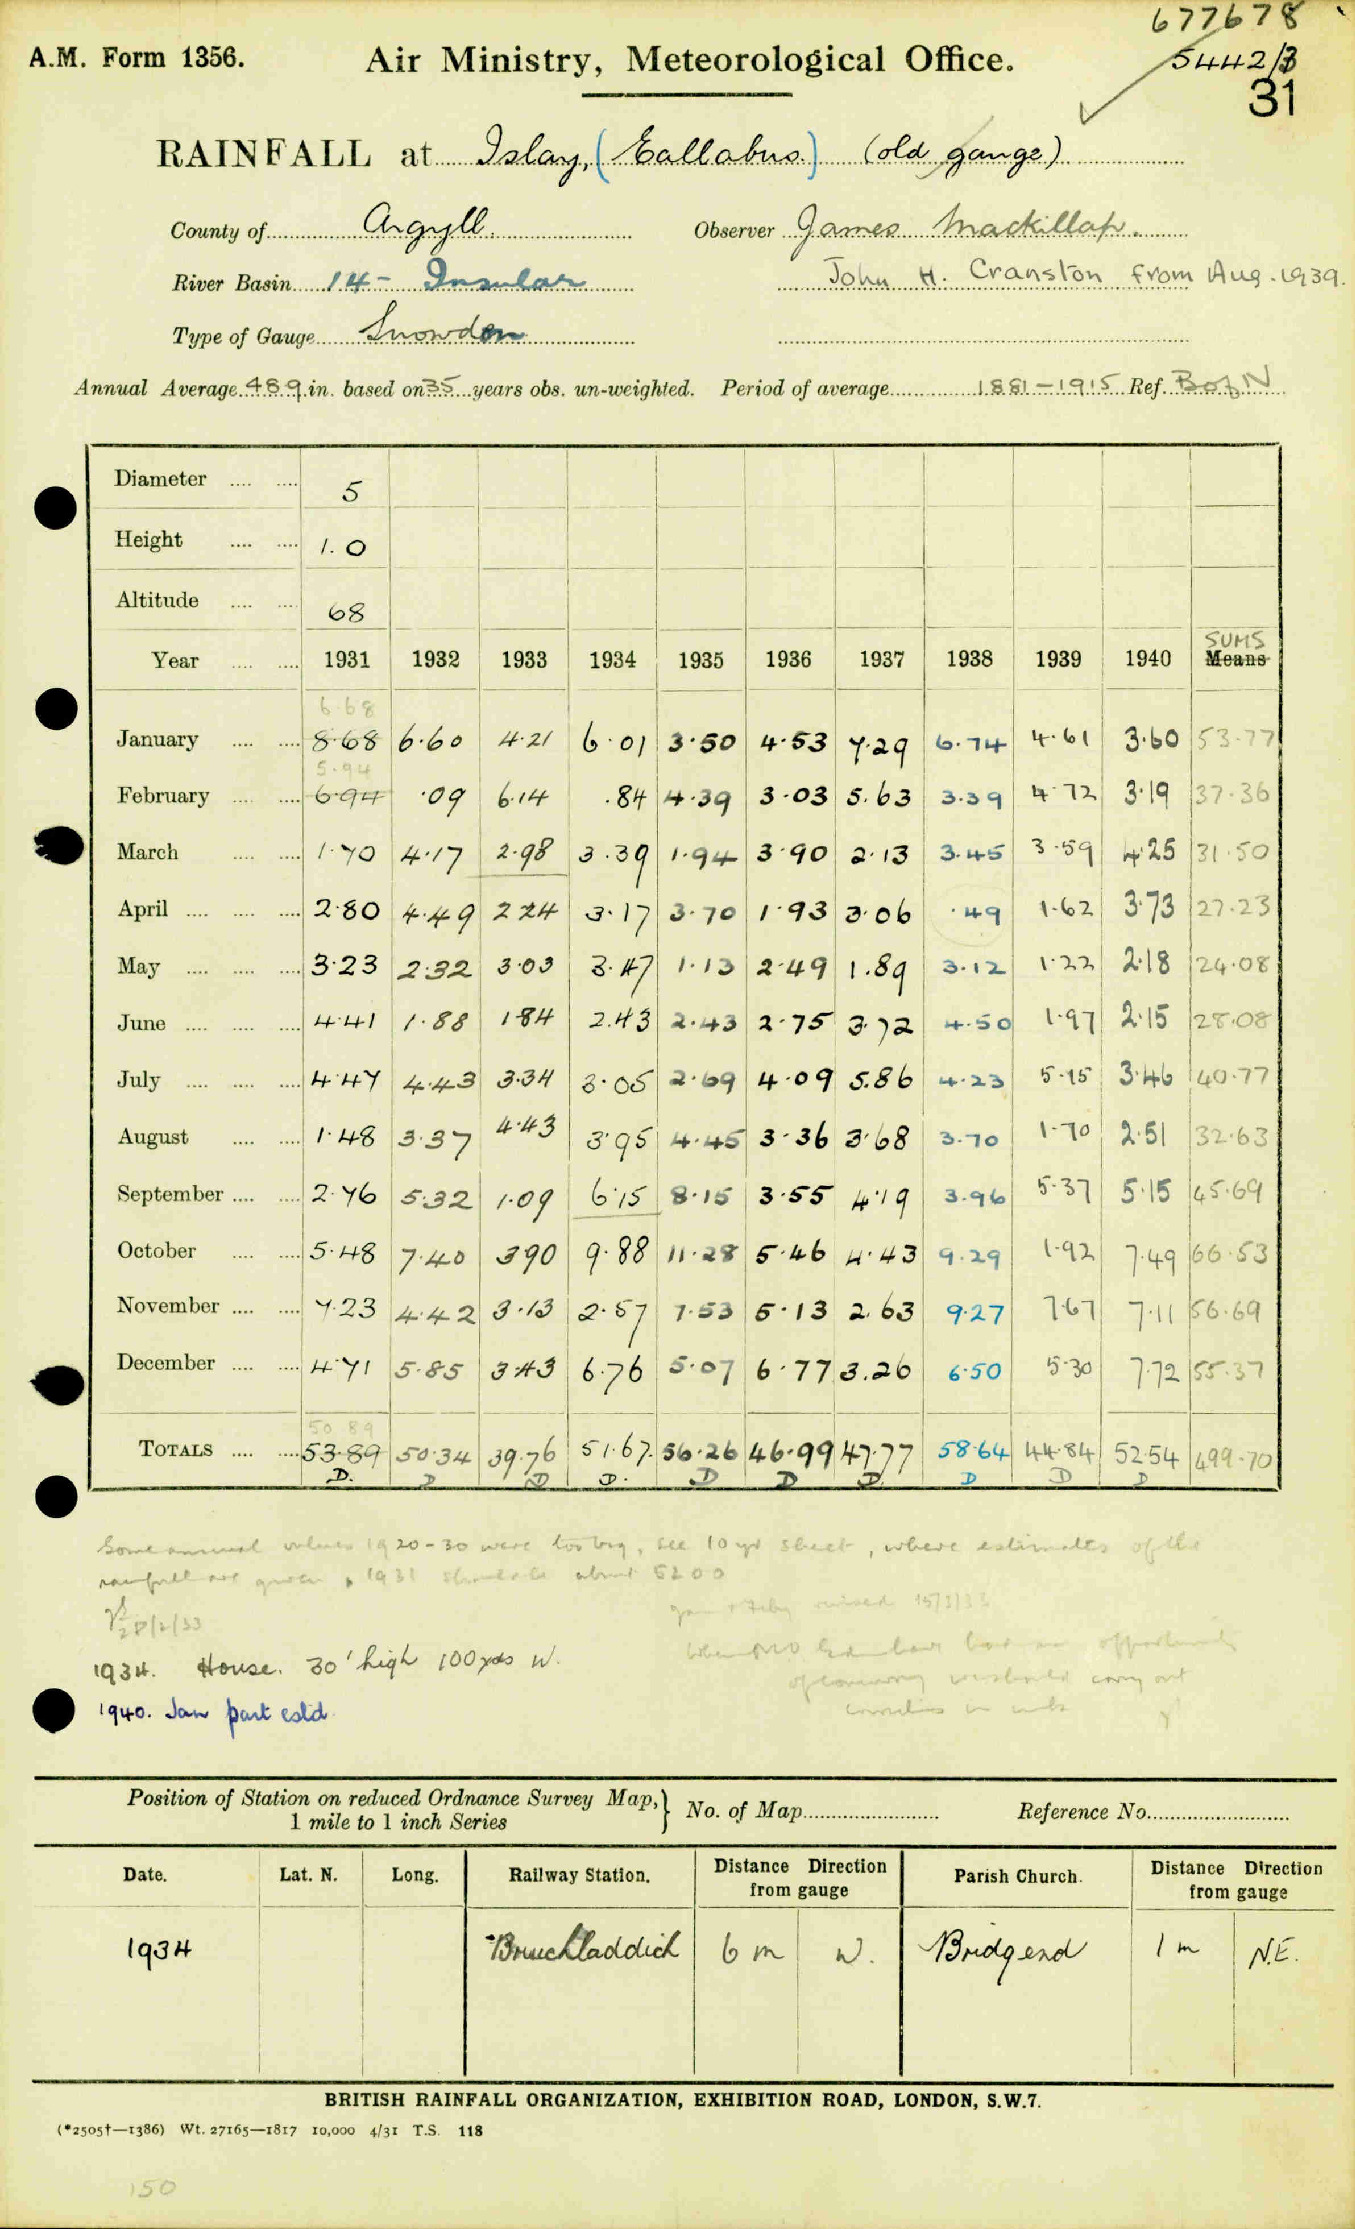 677678
A.M. Form 1356. Air Ministry, Meteorological Office. 5442/3
31
RAINFALL at Islay, (Eallabus.) (old gauge)
County of Argyll. Observer James Mackillop.
River Basin 14 - Insular John H. Cranston from Aug. 1939.
Type of Gauge Snowdon
Annual Average 48.9 in. based on 35 years obs. un-weighted. Period of average 1881-1915 Ref. B of N
Diameter .... .... 5
Height .... .... 1.0
Altitude .... .... 68
SUMS
Year .... .... 1931 1932 1933 1934 1935 1936 1937 1938 1939 1940 Means
6.68
January .... .... 8.68 6.60 4.21 6.01 3.50 4.53 7.29 6.74 4.61 3.60 53.77
5.94
February .... .... 6.94 .09 6.14 .84 4.39 3.03 5.63 3.39 4.72 3.19 37.36
March .... .... 1.70 4.17 2.98 3.39 1.94 3.90 2.13 3.45 3.59 4.25 31.50
April .... .... .... 2.80 4.49 2.24 3.17 3.70 1.93 3.06 .49 1.62 3.73 27.23
May .... .... .... 3.23 2.32 3.03 3.47 1.13 2.49 1.89 3.12 1.22 2.18 24.08
June .... .... .... 4.41 1.88 1.84 2.43 2.43 2.75 3.72 4.50 1.97 2.15 28.08
July .... .... .... 4.47 4.43 3.34 3.05 2.69 4.09 5.86 4.23 5.15 3.46 40.77
August .... .... 1.48 3.37 4.43 3.95 4.45 3.36 3.68 3.70 1.70 2.51 32.63
September .... .... 2.76 5.32 1.09 6.15 8.15 3.55 4.19 3.96 5.37 5.15 45.69
October .... .... 5.48 7.40 3.90 9.88 11.28 5.46 4.43 9.29 1.92 7.49 66.53
November .... .... 7.23 4.42 3.13 2.57 7.53 5.13 2.63 9.27 7.67 7.11 56.69
December .... .... 4.71 5.85 3.43 6.76 5.07 6.77 3.26 6.50 5.30 7.72 55.37
50 89
TOTALS .... .... 53.89 50.34 39.76 51.67 56.26 46.99 47.77 58.64 44.84 52.54 499.70
D. D D D. D D D. D D D
Some annual values 1920-30 were too big, see 10 yr sheet, where estimates of the
rainfall are given, 1931 should be about 5200
28/2/33 Jan & Feby revised 15/3/33
1934. House. 30' high 100 yds W.
1940. Jan part estd
Position of Station on reduced Ordnance Survey Map, 1 mile to 1 inch Series } No. of Map Reference No.
Date. Lat. N. Long. Railway Station. Distance Direction from gauge Parish Church. Distance Direction from gauge
1934 Bruichladdich 6 m W. Bridgend 1 m N.E.
BRITISH RAINFALL ORGANIZATION, EXHIBITION ROAD, LONDON, S.W.7.
(*2505†—1386) Wt. 27165—1817 10,000 4/31 T.S. 118
150